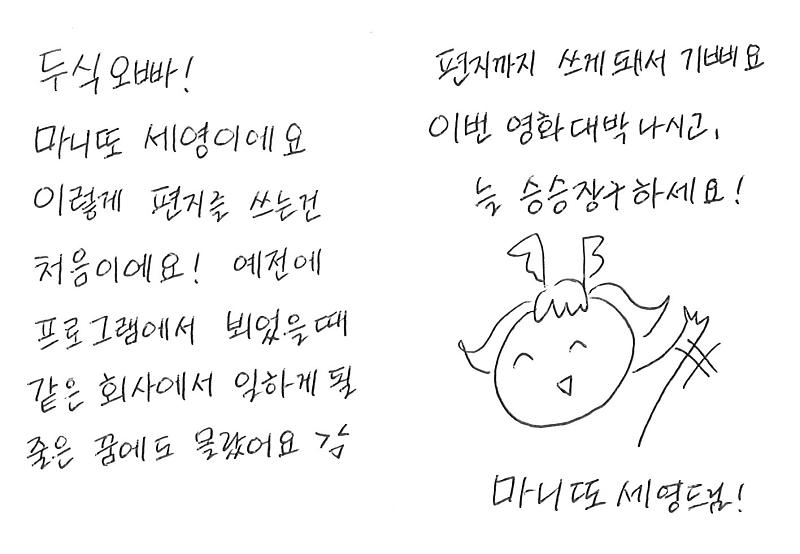 두식오빠!
마니또 세영이에요
이렇게 편지를 쓰는건
처음이에요! 예전에
프로그램에서 뵈었을때
같은 회사에서 일하게 될
줄은 꿈에도 몰랐어요 감
편지까지 쓰게돼서 기뻐요
이번 영화대박나시고,
늘 승승장구하세요!
마니또 세영드림!